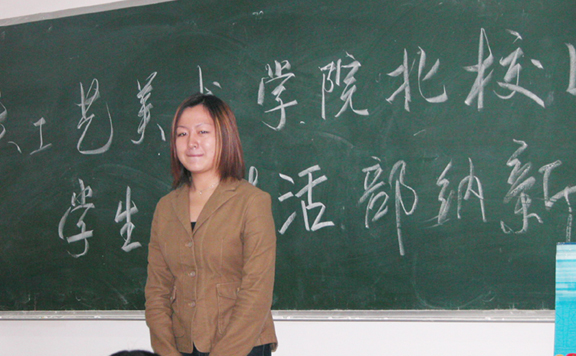 工艺美术学院北校
学生活部纳新